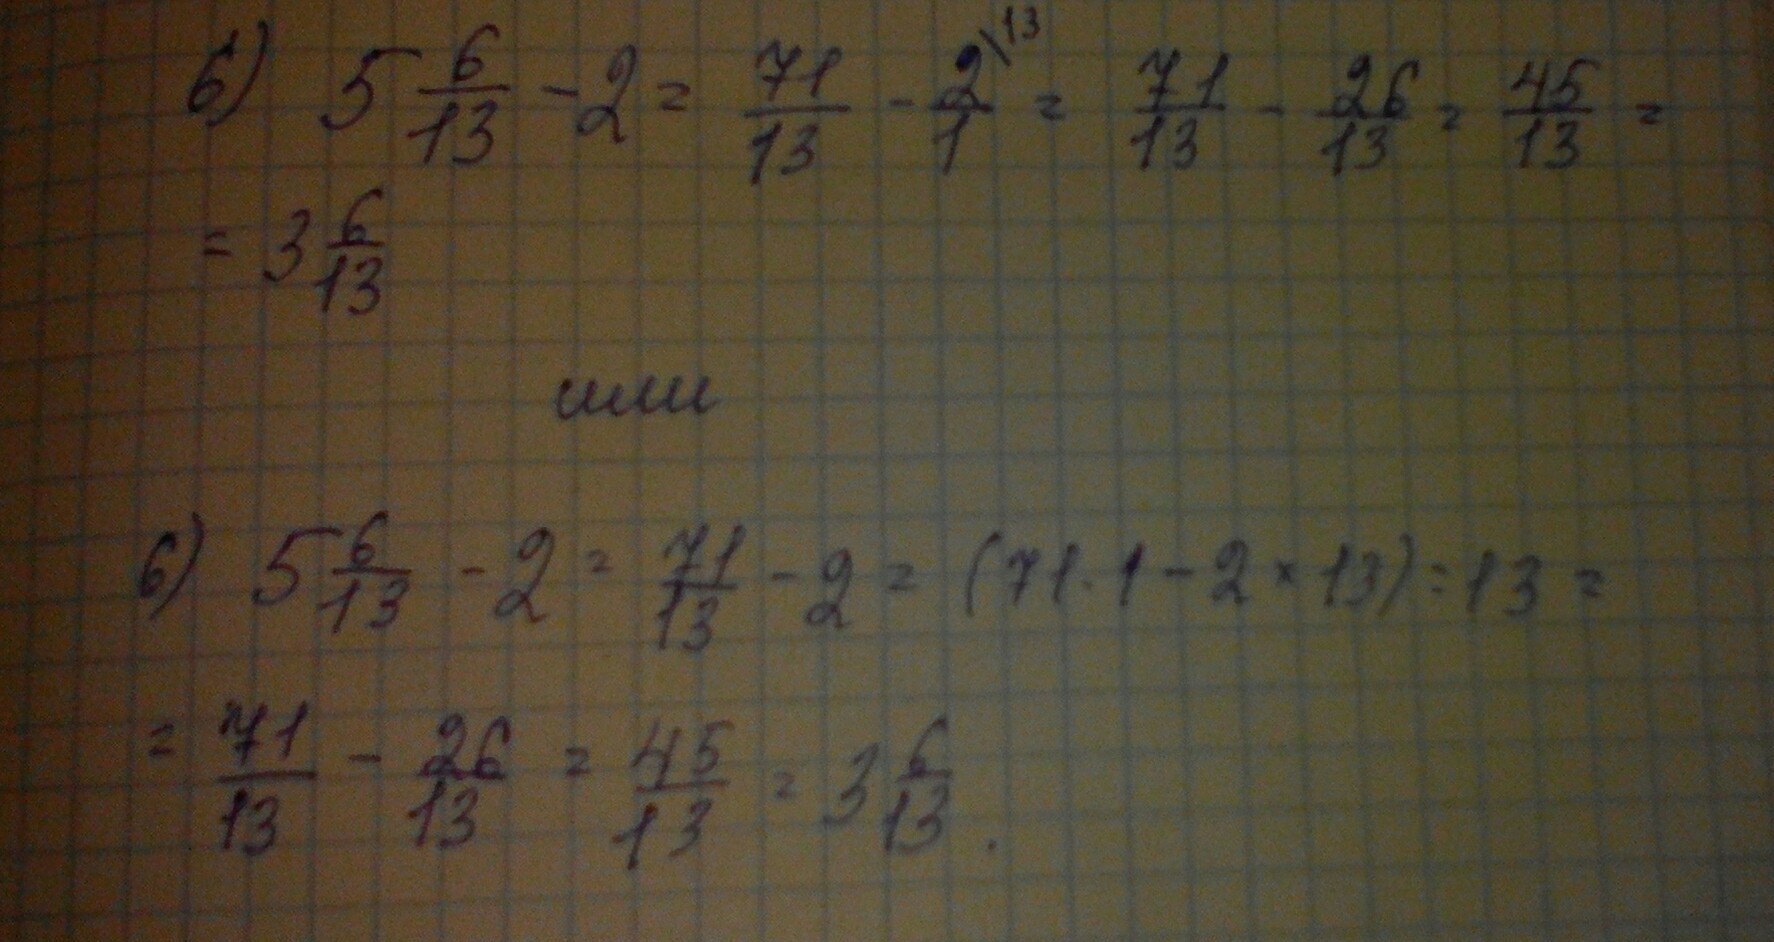 б) 5 6/13 - 2 = 71/13 - 2/1 \13 = 71/13 - 26/13 = 45/13 =
= 3 6/13
или
б) 5 6/13 - 2 = 71/13 - 2 = (71 · 1 - 2 × 13) : 13 =
= 71/13 - 26/13 = 45/13 = 3 6/13.